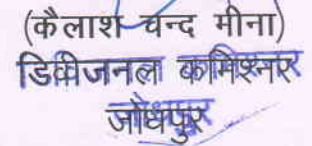 (कैलाश चन्द मीना)
डिवीजनल कमिश्नर
जोधपुर